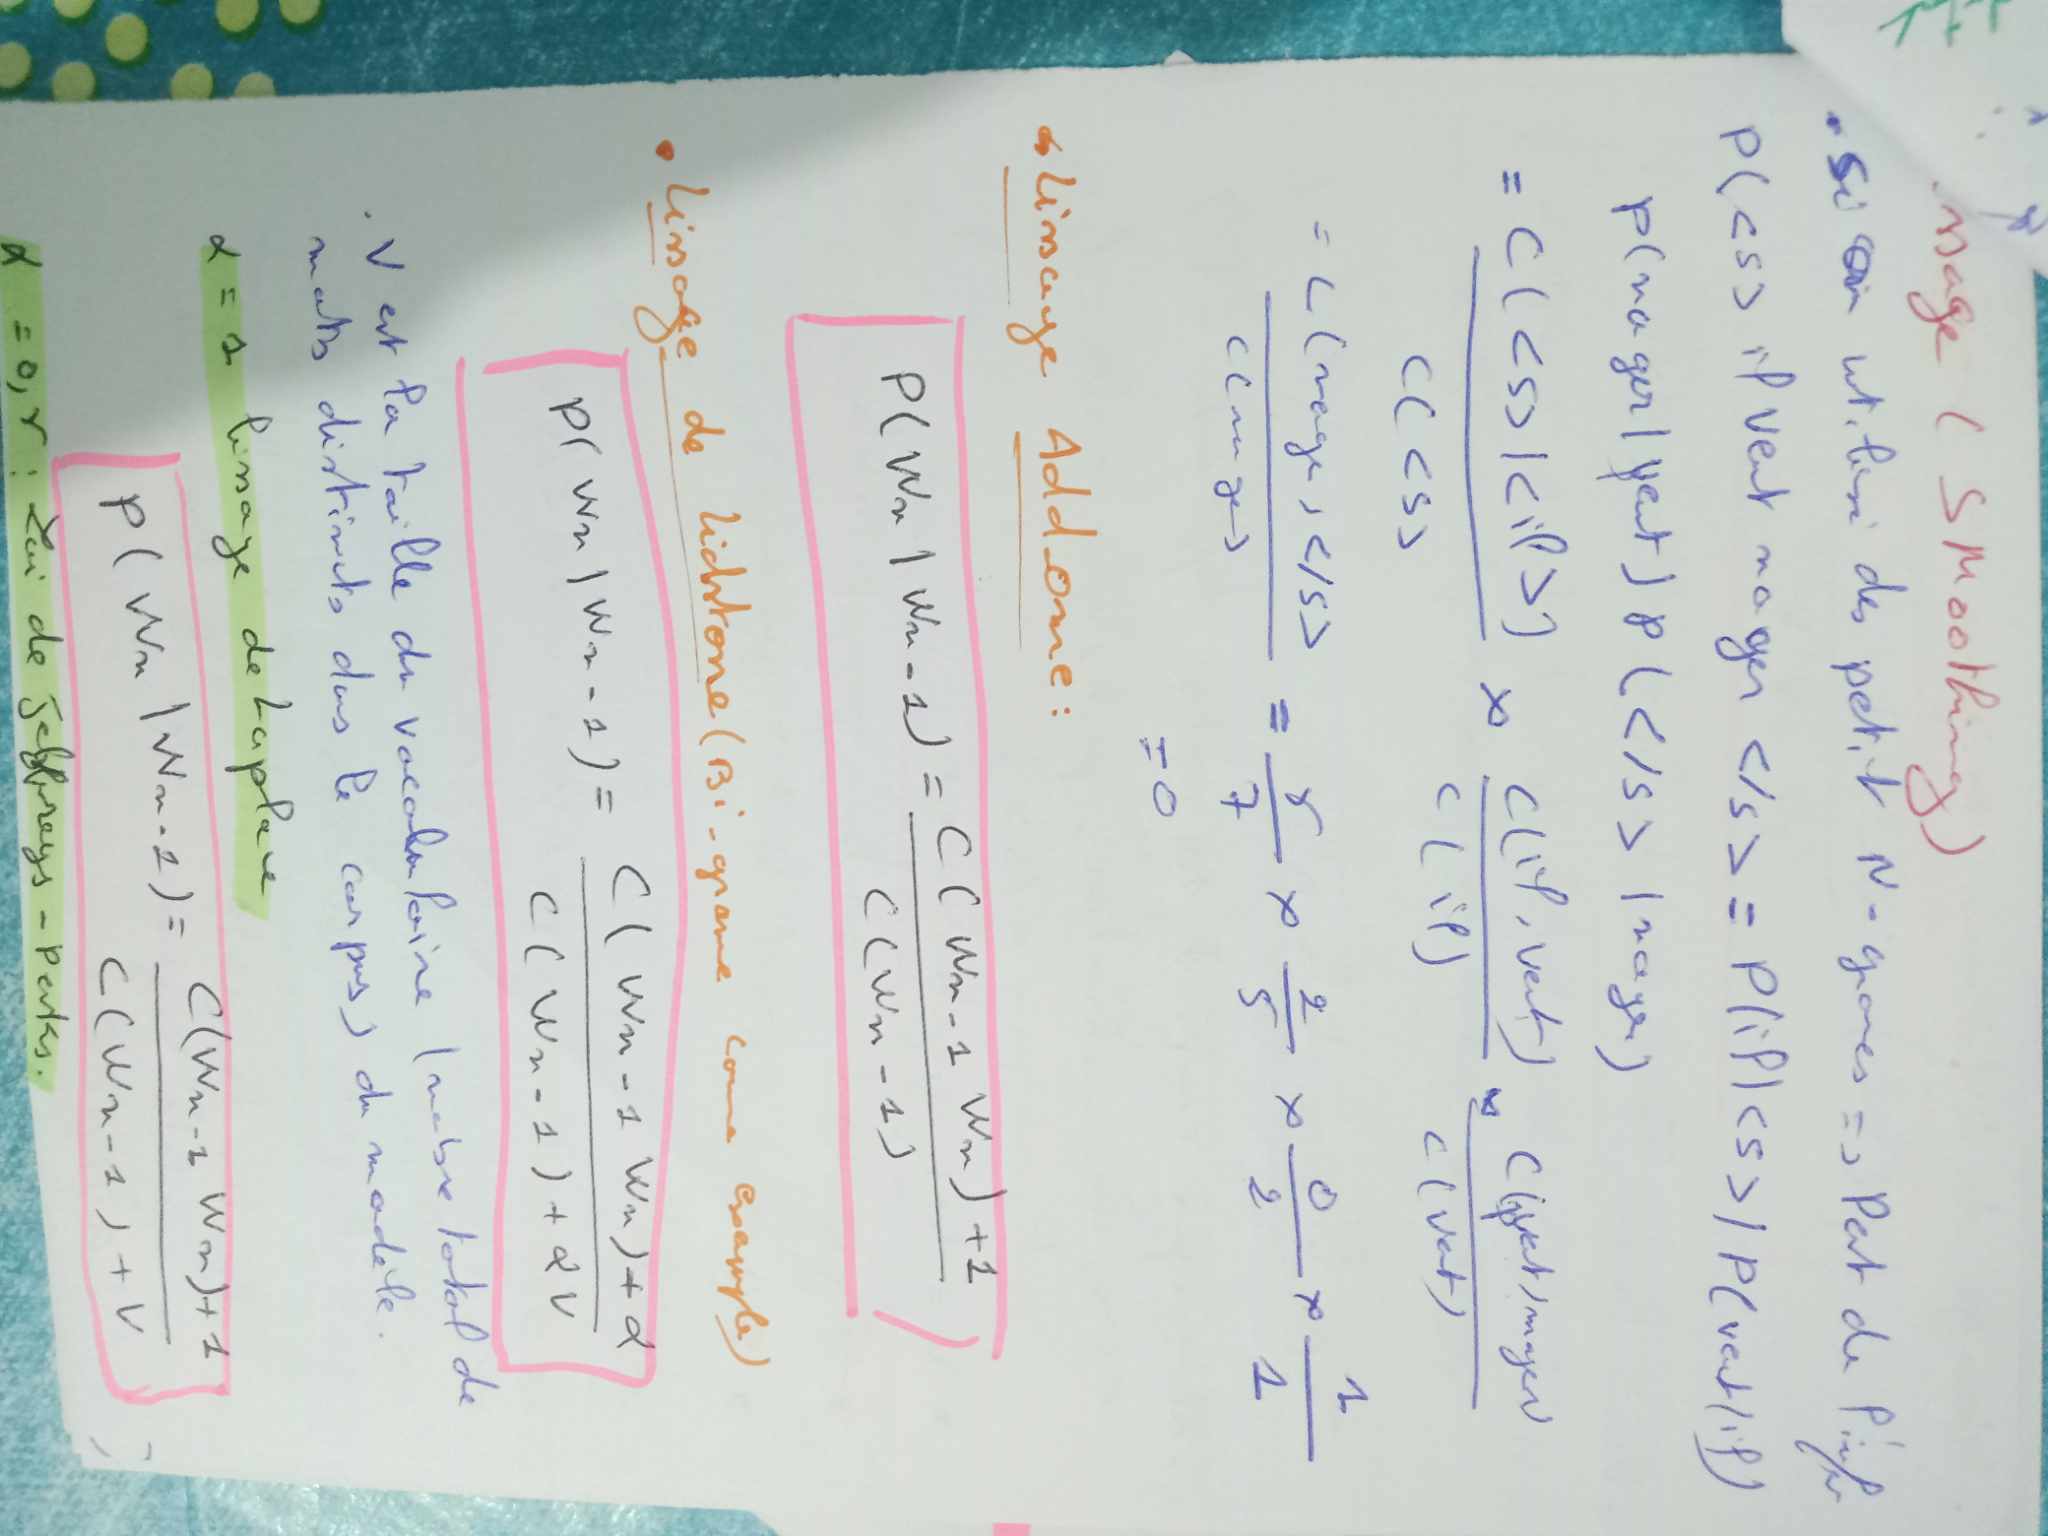 ssage (Smoothing)
• Si on utilisé des petit N-grames => Pert de l'infr
P(<s> il vent nager </s> = P(il|<s>) P(vent/il)
P(nager|vent) P(</s> | nager)
= C(<s>|<il>) × C(il, vent) × C(vent, nager)
C(<s> C(il) C(vent)
= C(nager, </s>
C(nager)
= 5/7 × 2/5 × 0/2 × 1/1
= 0
• Lissage Add_one:
P(Wn | Wn-1) = C(Wn-1 Wn)+1
C(Wn-1)
• Lissage de lidstone (Bi-grame come exemple)
P(Wn | Wn-1) = C(Wn-1 Wn)+α
C(Wn-1)+αV
. V est la taille du vocabulaire (nombre total de
mots distincts dans le corpus) du modèle.
α = 1 lissage de Laplace
P(Wn | Wn-1) = C(Wn-1 Wn)+1
C(Wn-1)+V
α = 0,5 : Loi de Jeffreys-Perks.